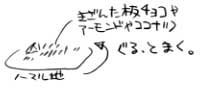 きざんだ板チョコや
アーモンドやココナツ
ぐるっとまく。
ノーマル地